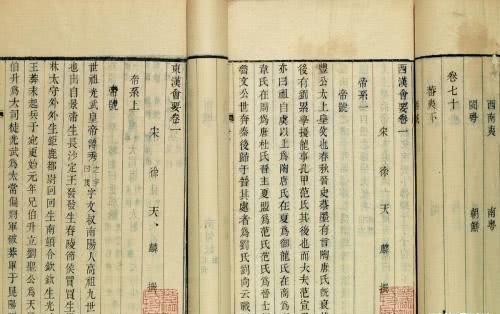 西南夷 南粤
卷七十
閩粤 朝鮮
蕃夷下
西漢會要卷一
宋 徐 天 麟 撰
帝系一
帝號
豐公太上皇父也春秋晉史蔡墨有言陶唐氏既衰
後有劉累學擾龍事孔甲范氏其後也而大夫范宣
亦曰祖自虞以上爲陶唐氏在夏爲御龍氏在商爲
韋氏在周爲唐杜氏晉主夏盟爲范氏范氏爲晉士
魯文公世奔秦後歸于晉其處者爲劉氏劉向云戰
東漢會要卷一
宋 徐 天 麟 撰
帝系上
帝號
世祖光武皇帝諱秀字文叔南陽人高祖九世
也出自景帝生長沙定王發發生舂陵節侯買買生
林太守外外生鉅鹿都尉回回生南頓令欽欽生光
王莽末起兵于宛更始元年兄伯升立劉聖公爲天
伯升爲大司徒光武爲太常偏將軍破莽軍于昆陽